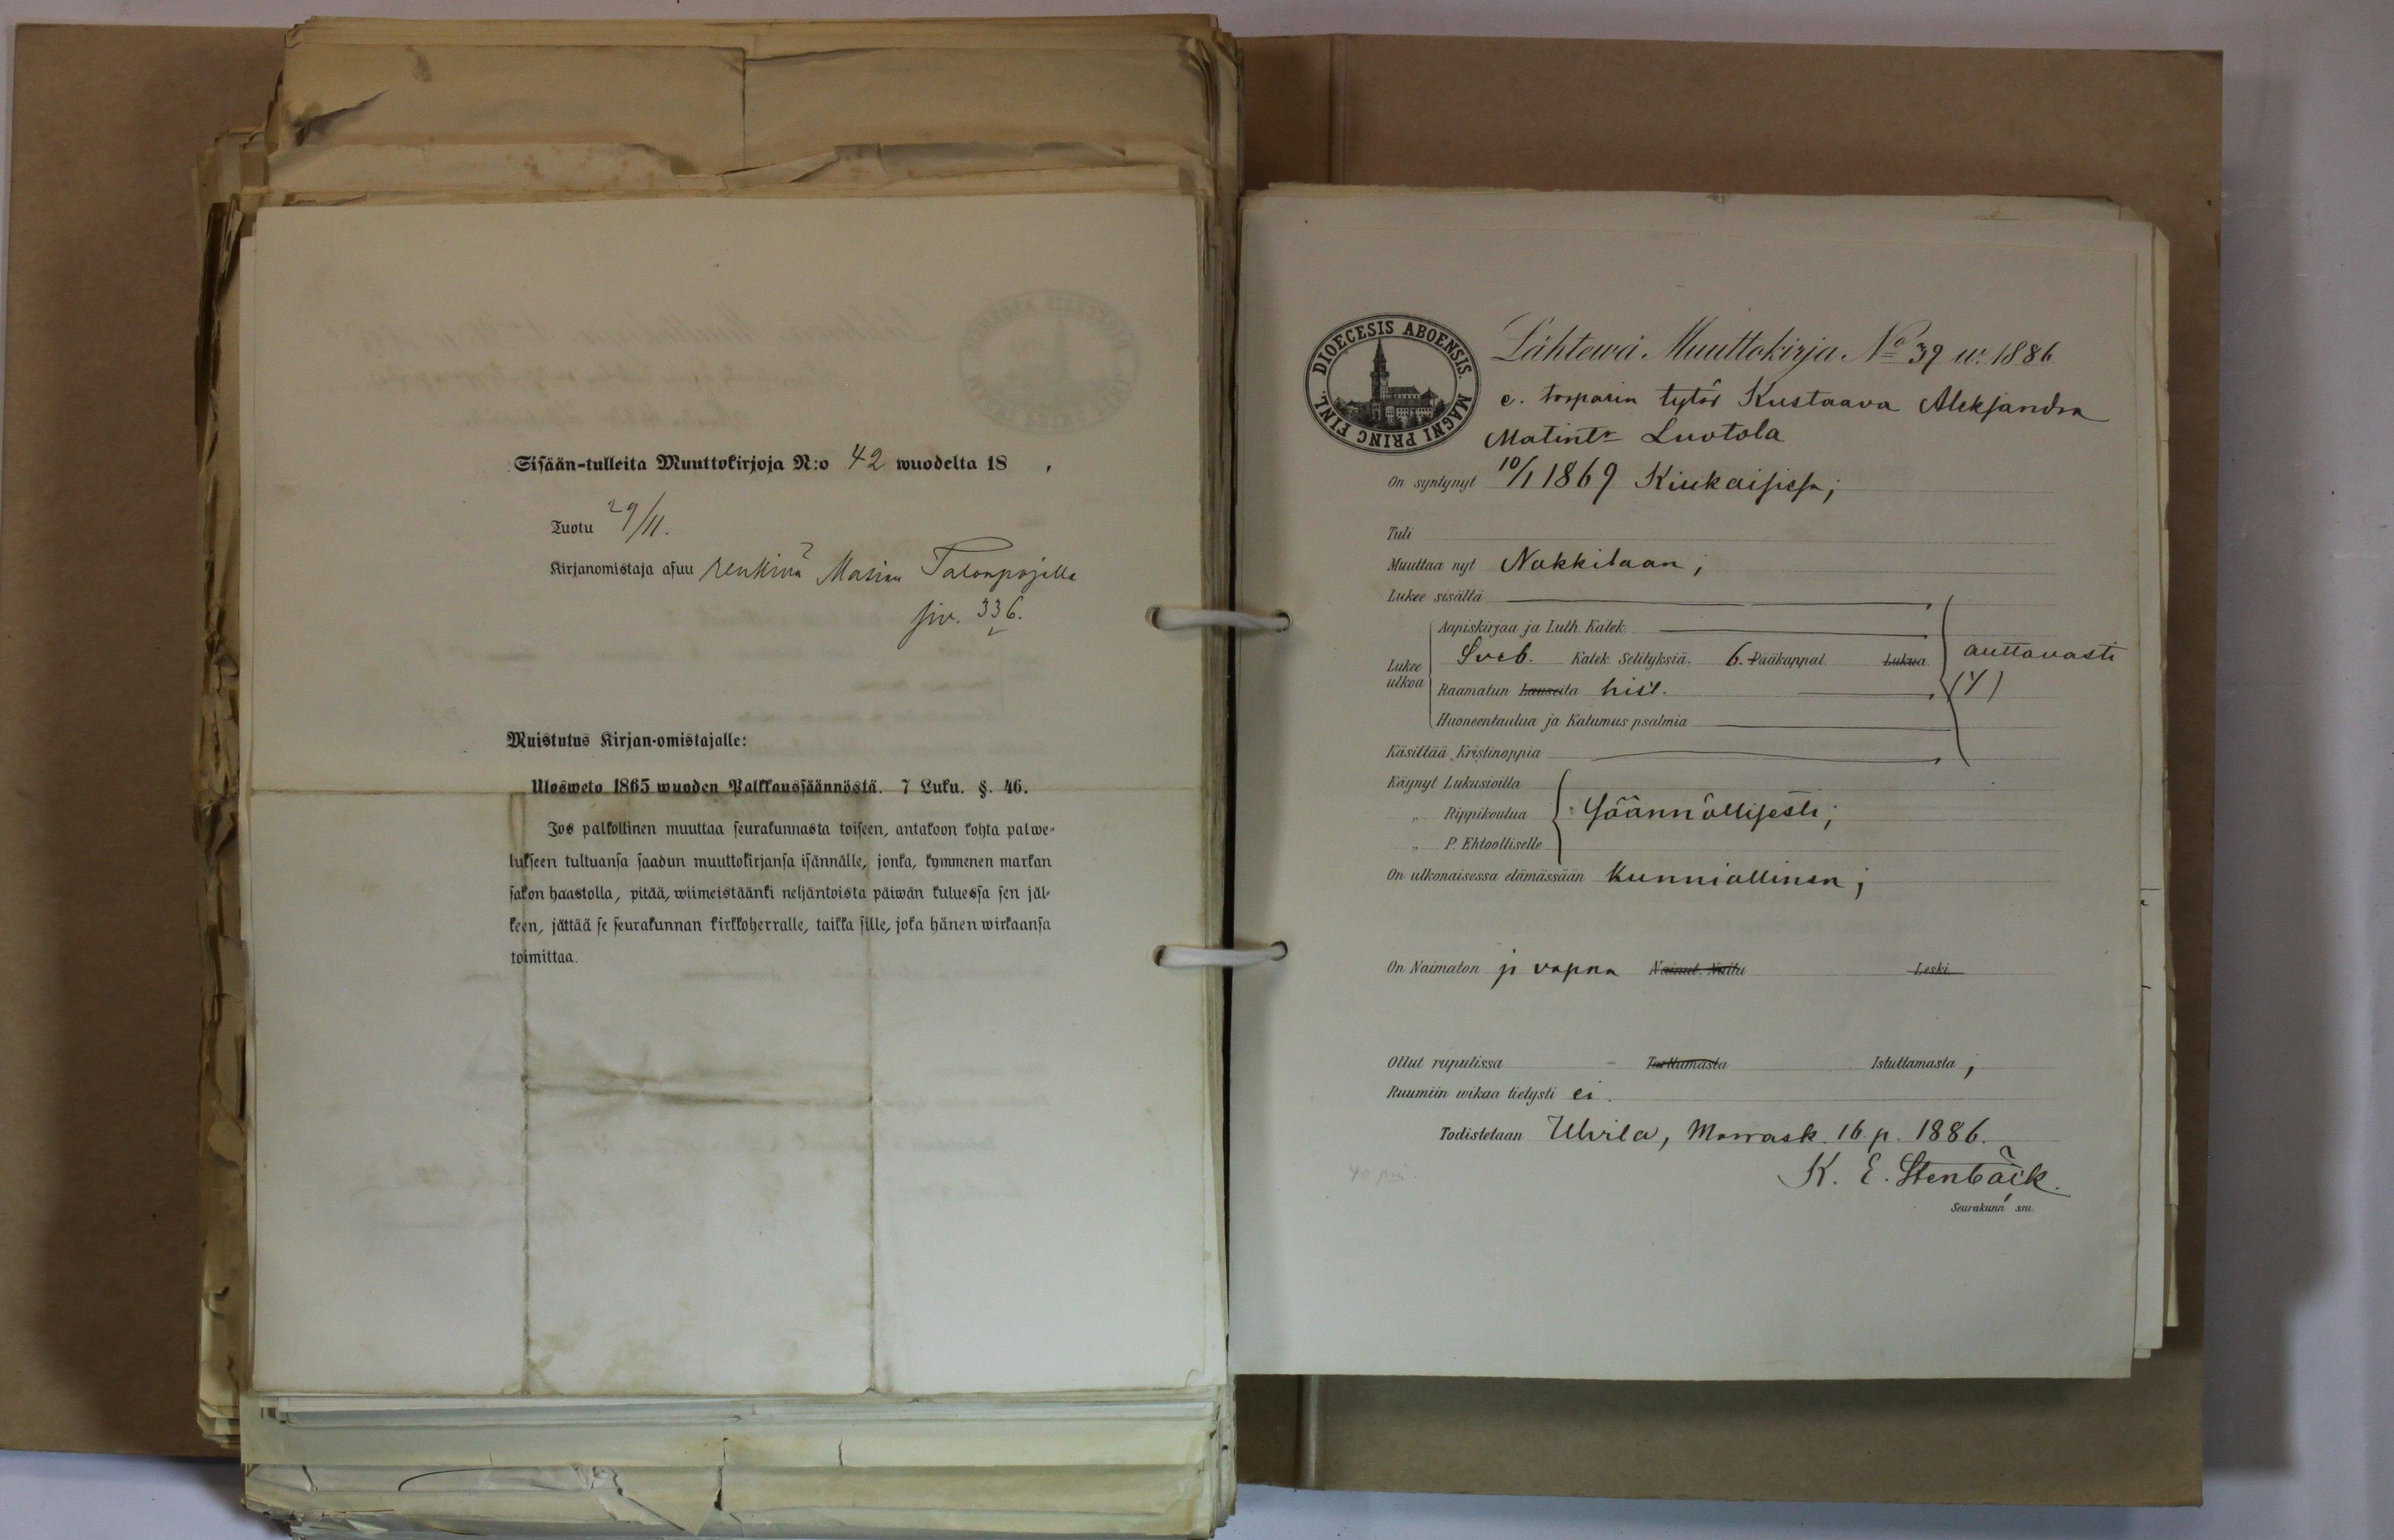 Sisään-tulleita Muuttokirjoja N:o 42 wuodelta 18 ,
Tuotu 29/11.
Kirjanomistaja asuu renkinä Masian Talonpojalla
siv. 336.
Muistutus Kirjan-omistajalle:
Ulosweto 1865 wuoden Palkkaussäännöstä. 7 Luku. §. 46.
Jos palkollinen muuttaa seurakunnasta toiseen, antakoon kohta palwe-
lukseen tultuansa saadun muuttokirjansa isännälle, jonka, kymmenen markan
sakon haastolla, pitää, wiimeistäänki neljäntoista päiwän kuluessa sen jäl-
keen, jättää se seurakunnan kirkkoherralle, taikka sille, joka hänen wirkaansa
toimittaa.
DIOECESIS ABOENSIS. MAGNI PRINC FINL.
Lähtewä Muuttokirja No 39 w. 1886.
e. torparin tytör Kustaava Aleksandra
Matintr Luotola
On syntynyt 10/1 1869 Kiukaisissa;
Tuli
Muuttaa nyt Nakkilaan;
Lukee sisältä
Aapiskirjaa ja Luth. Katek.
Lukee ulkoa
Sveb. Katek. Selityksiä. 6. Pääkappal. Lukua auttavasti
Raamatun Lauseita hist. (4)
Huoneentaulua ja Katumus psalmia
Käsittää Kristinoppia
Käynyt Lukusioilla
„ Rippikoulua Säännöllisesti;
„ P. Ehtoolliselle
On ulkonaisessa elämässään kunniallinen;
On Naimaton ja vapaa Nainut. Naitu Leski
Ollut rupulissa Tarttumasta Istuttamasta,
Ruumiin wikaa tietysti ei.
Todistetaan Ulvila, Marrask. 16 p. 1886.
K. E. Stenbäck.
Seurakunn ssa.
40 pni.